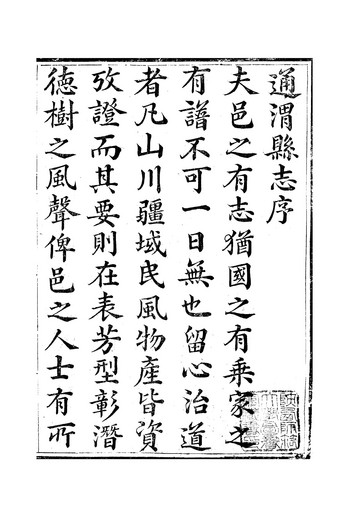 通渭縣志序
夫邑之有志猶國之有乘家之
有譜不可一日無也留心治道
者凡山川疆域民風物產皆資
攷證而其要則在表芳型彰潛
德樹之風聲俾邑之人士有所